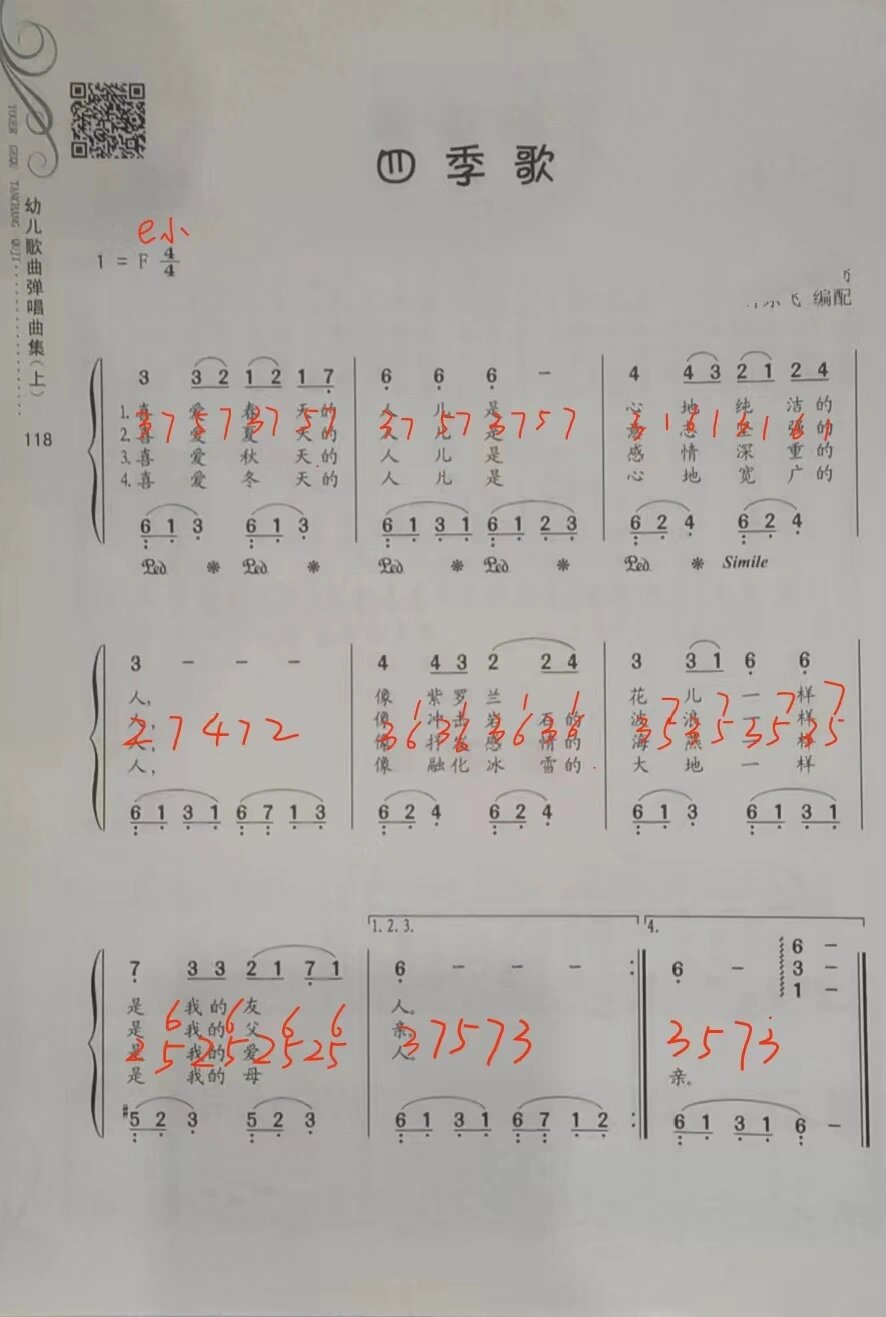 YOUER GEQU TANCHANG QUJI
幼儿歌曲弹唱曲集(上)
118
四季歌
e小
1 = F 4/4
飞 编配
3 3 2 1 2 1 7 | 6 6 6 – | 4 4 3 2 1 2 4 |
1.喜 爱 春 天的 人 儿 是 心 地 纯 洁的
3 7 5 7 3 7 5 7 3 7 5 7 3 7 5 7
2.喜 爱 夏 天的 人 儿 是 意 志 坚 强的
3.喜 爱 秋 天的 人 儿 是 感 情 深 重的
4.喜 爱 冬 天的 人 儿 是 心 地 宽 广的
6 1 3 6 1 3 | 6 1 3 1 6 1 2 3 | 6 2 4 6 2 4
Ped * Ped * Ped * Ped * Ped * Simile
3 – – – | 4 4 3 2 2 4 | 3 3 1 6 6 |
人, 像 紫罗 兰 花 儿 一 样
人, 像 冲击 岩 石的 波 浪 一 样
2 7 4 7 2
人, 像 抒发 感 情的 海 燕 一 样
人, 像 融化 冰 雪的 大 地 一 样
6 1 3 1 6 7 1 3 | 6 2 4 6 2 4 | 6 1 3 6 1 3 1
1. 2. 3.
4.
7 3 3 2 1 7 1 | 6 – – – :| 6 – 6 –
3 –
1 –
是 我的 友 人。
是 我的 父 亲。
6 6 6 6
2 5 2 5 2 5 2 5 3 7 5 7 3 3 5 7 3
是 我的 爱 人。
是 我的 母 亲。
#5 2 3 5 2 3 | 6 1 3 1 6 7 1 2 :| 6 1 3 1 6 –